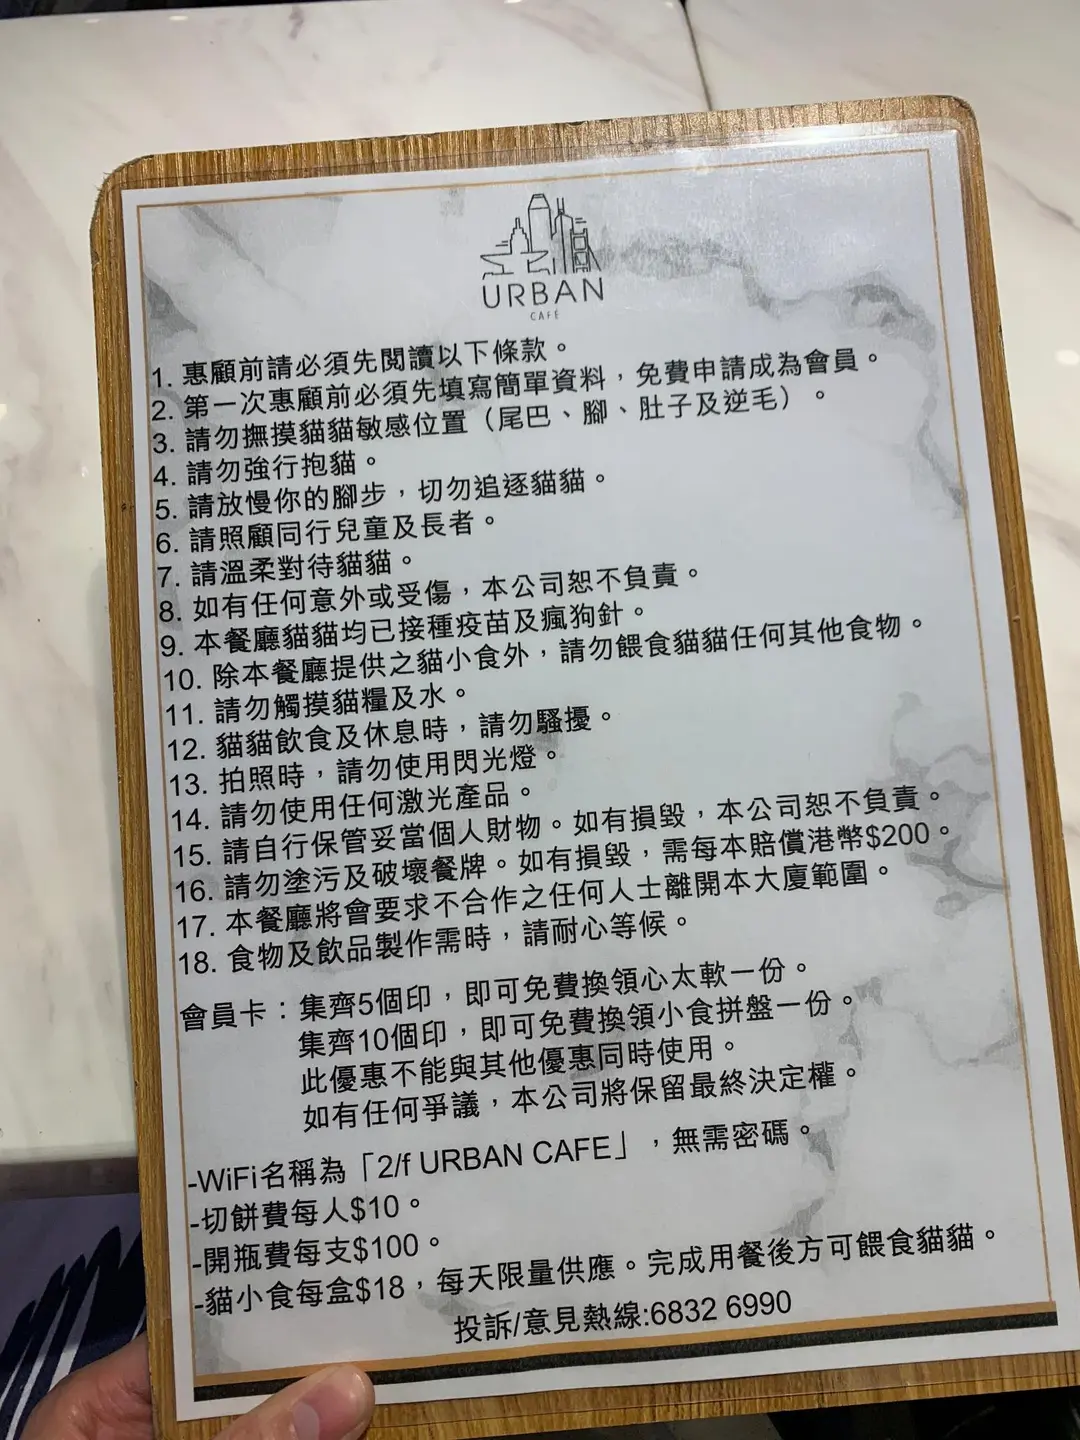 URBAN
CAFÉ
1. 惠顧前請必須先閱讀以下條款。
2. 第一次惠顧前必須先填寫簡單資料，免費申請成為會員。
3. 請勿撫摸貓貓敏感位置（尾巴、腳、肚子及逆毛）。
4. 請勿強行抱貓。
5. 請放慢你的腳步，切勿追逐貓貓。
6. 請照顧同行兒童及長者。
7. 請溫柔對待貓貓。
8. 如有任何意外或受傷，本公司恕不負責。
9. 本餐廳貓貓均已接種疫苗及瘋狗針。
10. 除本餐廳提供之貓小食外，請勿餵食貓貓任何其他食物。
11. 請勿觸摸貓糧及水。
12. 貓貓飲食及休息時，請勿騷擾。
13. 拍照時，請勿使用閃光燈。
14. 請勿使用任何激光產品。
15. 請自行保管妥當個人財物。如有損毀，本公司恕不負責。
16. 請勿塗污及破壞餐牌。如有損毀，需每本賠償港幣$200。
17. 本餐廳將會要求不合作之任何人士離開本大廈範圍。
18. 食物及飲品製作需時，請耐心等候。
會員卡：集齊5個印，即可免費換領心太軟一份。
集齊10個印，即可免費換領小食拼盤一份。
此優惠不能與其他優惠同時使用。
如有任何爭議，本公司將保留最終決定權。
-WiFi名稱為「2/f URBAN CAFE」，無需密碼。
-切餅費每人$10。
-開瓶費每支$100。
-貓小食每盒$18，每天限量供應。完成用餐後方可餵食貓貓。
投訴/意見熱線:6832 6990